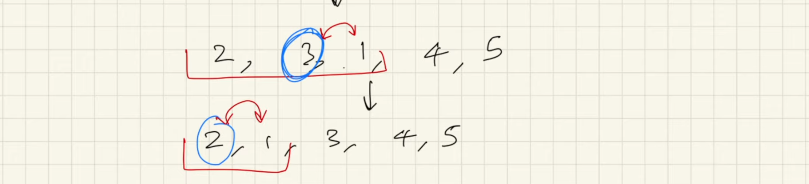 2, 3, 1, 4, 5
2, 1, 3, 4, 5